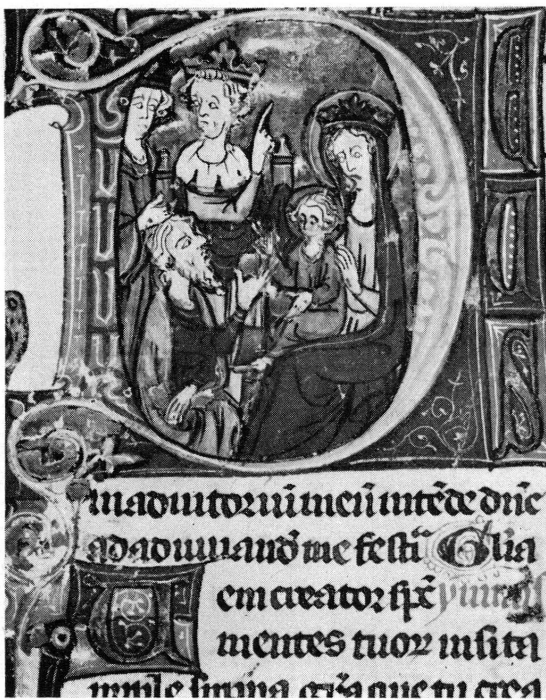 D E U S
in adiutoriū meū intēde dn̄e
ad adiuuand̄ me festī Gl̄ia
Ueni creator sp̄c
mentes tuoꝝ uisita
imple superna gr̄a que tu crea